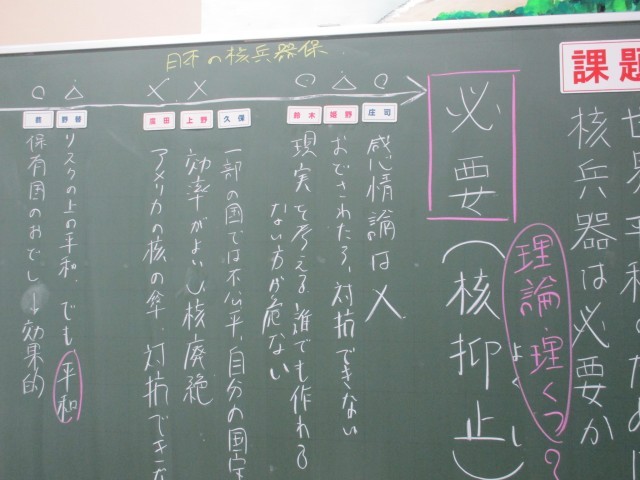 課題
世界平和のために
核兵器は必要か
理論・理くつ?
よく
し
必要(核抑止)
日本の核兵器保
庄司
感情論は×
おどされたら、対抗できない
鈴木
現実を考える誰でも作れる
ない方が危ない
久保
一部の国では不公平、自分の国
上野
効率がよいし核廃絶
廣田
アメリカの核の傘、対抗でき
野替
リスクの上の平和、でも平和
保有国のおどし→効果的